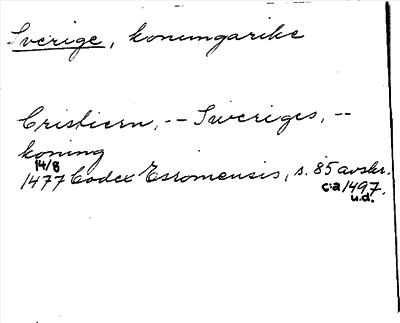 Sverige, konungarike
Cristiern, -- Sweriges, --
koning
14/8
1477 Codex Esromensis, s. 85 avskr.
c:a 1497.
u.d.